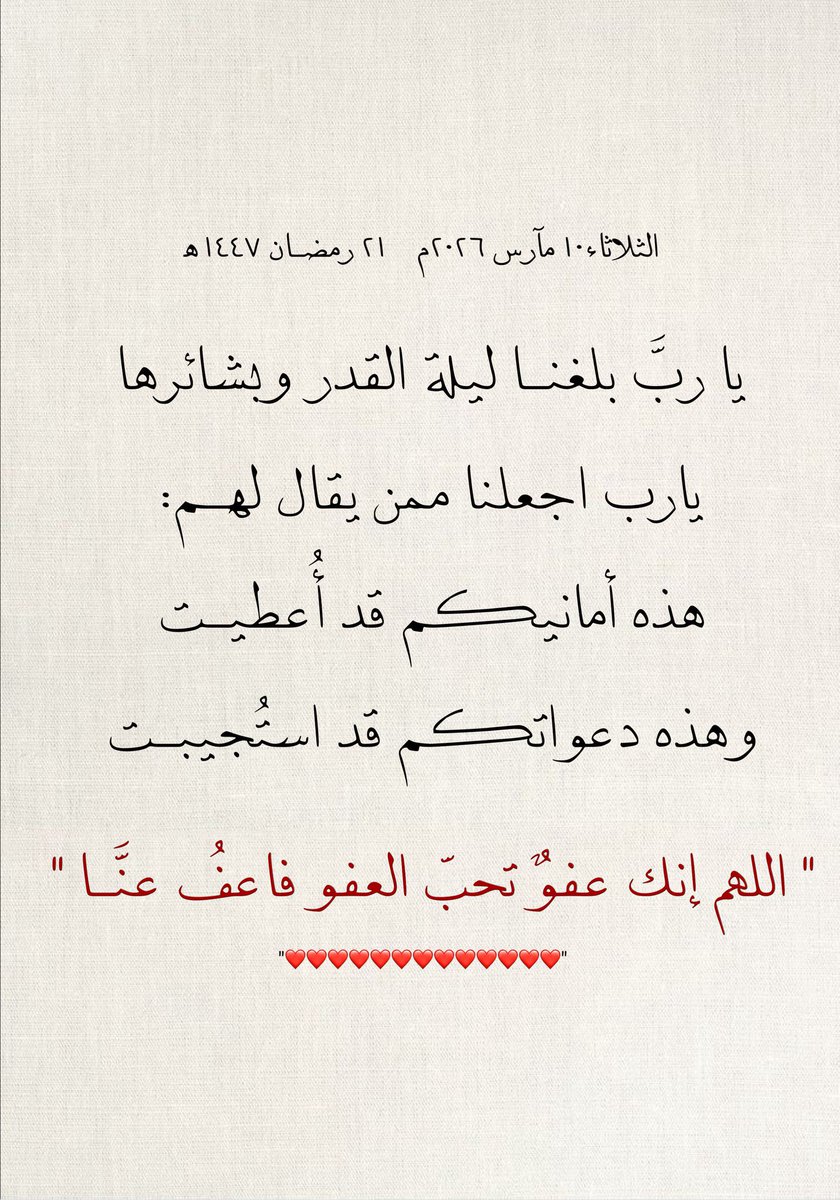 الثلاثاء١٠ مآرس ٢٠٢٦م ٢١ رمضـان ١٤٤٧ه
يا ربَّ بلغنـا ليلة القدر وبشائرها
يارب اجعلنا ممن يقال لهـم:
هذه أمانيكم قد أُعطيـت
وهذه دعواتكم قد استُجيبـت
" اللهم إنك عفوٌ تحبّ العفو فاعفُ عنَّـا "
"❤️❤️❤️❤️❤️❤️❤️❤️❤️❤️❤️❤️❤️"